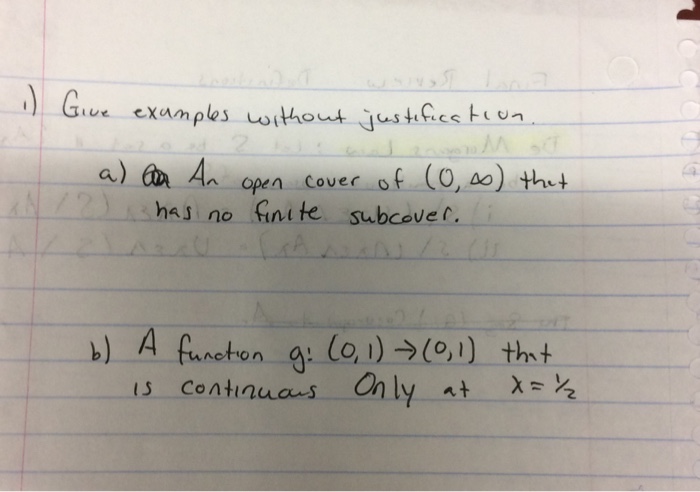 1) Give examples without justification.
a) An open cover of (0, ∞) that
has no finite subcover.
b) A function g: (0,1) → (0,1) that
is continuous Only at x = 1/2